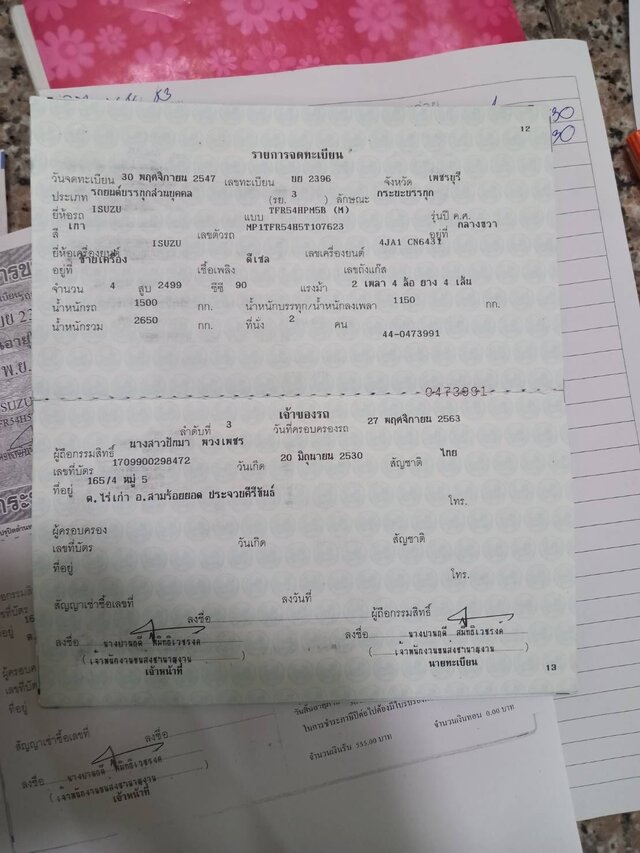 12
รายการจดทะเบียน
วันจดทะเบียน 30 พฤศจิกายน 2547 เลขทะเบียน ยย 2396 จังหวัด เพชรบุรี
ประเภท รถยนต์บรรทุกส่วนบุคคล (รย. 3 ) ลักษณะ กระบะบรรทุก
ยี่ห้อรถ ISUZU แบบ TFR54HPM5B (M) รุ่นปี ค.ศ.
สี เทา เลขตัวรถ MP1TFR54H5T107623 อยู่ที่ กลางขวา
ยี่ห้อเครื่องยนต์ ISUZU เลขเครื่องยนต์ 4JA1 CN6431
อยู่ที่ ซ้ายเครื่อง เชื้อเพลิง ดีเซล เลขถังแก๊ส
จำนวน 4 สูบ 2499 ซีซี 90 แรงม้า 2 เพลา 4 ล้อ ยาง 4 เส้น
น้ำหนักรถ 1500 กก. น้ำหนักบรรทุก/น้ำหนักลงเพลา 1150 กก.
น้ำหนักรวม 2650 กก. ที่นั่ง 2 คน
44-0473991
0473991
เจ้าของรถ
ลำดับที่ 3 วันที่ครอบครองรถ 27 พฤศจิกายน 2563
ผู้ถือกรรมสิทธิ์ นางสาวปัทมา พวงเพชร
เลขที่บัตร 1709900298472 วันเกิด 20 มิถุนายน 2530 สัญชาติ ไทย
ที่อยู่ 165/4 หมู่ 5
ต.ไร่เก่า อ.สามร้อยยอด ประจวบคีรีขันธ์ โทร.
ผู้ครอบครอง
เลขที่บัตร วันเกิด สัญชาติ
ที่อยู่ โทร.
สัญญาเช่าซื้อเลขที่ ลงวันที่ ผู้ถือกรรมสิทธิ์
ลงชื่อ
ลงชื่อ ลงชื่อ
(เจ้าพนักงานขนส่งชำนาญงาน) (เจ้าพนักงานขนส่งชำนาญงาน)
เจ้าหน้าที่ นายทะเบียน
13
สัญญาเช่าซื้อเลขที่ ลงชื่อ
ลงชื่อ
(เจ้าพนักงานขนส่งชำนาญงาน)
เจ้าหน้าที่
จำนวนเงินทอน 0.00 บาท
จำนวนเงินรับ 555.00 บาท